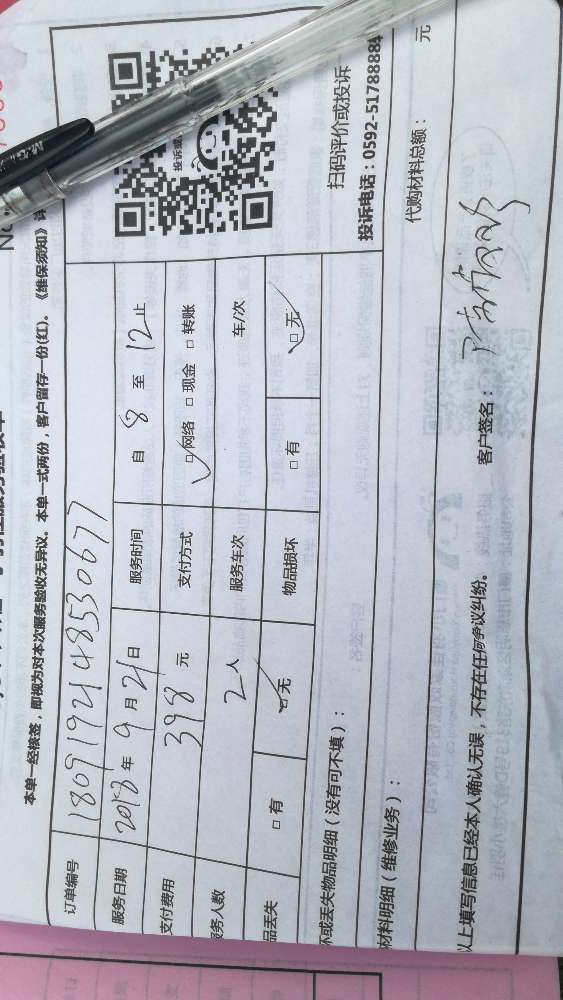 本单一经核签，即视为对本次服务验收无异议。本单一式两份，客户留存一份(红)。《维保须知》
订单编号 1809192148530677
服务日期 2018年9月21日 服务时间 自 8 至 12 止
支付费用 398 元 支付方式 ☑网络 □现金 □转账
务人数 2人 服务车次 车/次
品丢失 □有 ☑无 物品损坏 □有 ☑无
扫码评价或投诉
投诉电话：0592-5178888
坏或丢失物品明细（没有可不填）：
材料明细（维修业务）： 代购材料总额： 元
以上填写信息已经本人确认无误，不存在任何争议纠纷。 客户签名：